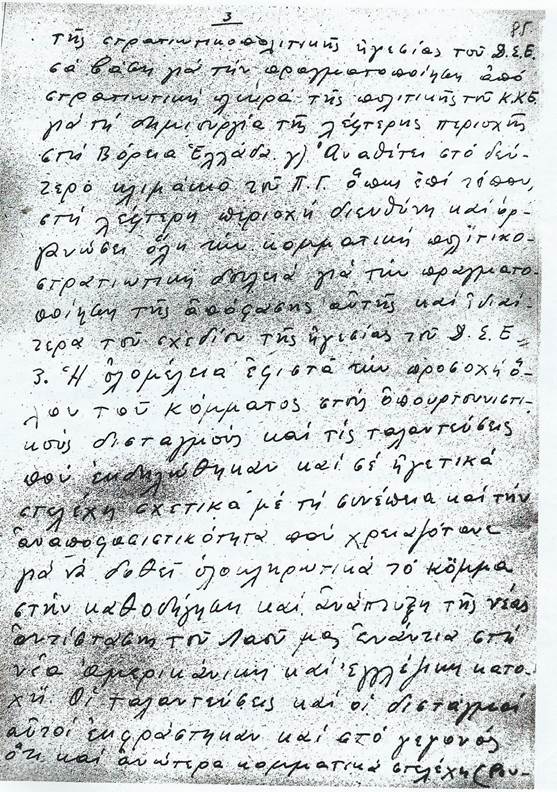 3
85
τῆς στρατιωτικοπολιτικῆς ἡγεσίας τοῦ Δ.Σ.Ε.
σά βάση γιά τήν πραγματοποίηση ἀπό
στρατιωτική πλευρά τῆς πολιτικῆς τοῦ Κ.Κ.Ε.
γιά τή δημιουργία τῆς λέφτερης περιοχῆς
στή Βόρεια Ἑλλάδα. γ) Ἀναθέτει στό δεύ-
τερο κλιμάκιο τοῦ Π.Γ. ὅπως ἐπί τόπου,
στή λέφτερη περιοχή διευθύνη καί ὀρ-
γανώσει ὅλη τήν κομματική πολιτικο-
στρατιωτική δουλειά γιά τήν πραγματο-
ποίηση τῆς ἀπόφασης αὐτῆς καί ἰδιαί-
τερα τοῦ σχεδίου τῆς ἡγεσίας τοῦ Δ.Σ.Ε.
3. Ἡ ὁλομέλεια ἐφιστᾶ τήν προσοχή ὅ-
λου τοῦ κόμματος στούς ὀπουρτουνιστι-
κούς δισταγμούς καί τίς ταλαντεύσεις
πού ἐκδηλώθηκαν καί σέ ἡγετικά
στελέχη σχετικά μέ τή συνέπεια καί τήν
ἀναποφασιστικότητα πού χρειαζότανε
γιά νά δοθεῖ ὁλοκληρωτικά τό κόμμα
στήν καθοδήγηση καί ἀνάπτυξη τῆς νέας
ἀντίστασης τοῦ Λαοῦ μας ἐνάντια στή
νέα ἀμερικάνικη καί ἐγγλέζικη κατο-
χή. Οἱ ταλαντεύσεις καί οἱ δισταγμοί
αὐτοί ἐκφράστηκαν καί στό γεγονός
ὅτι καί ἀνώτερα κομματικά στελέχη (Ρου-